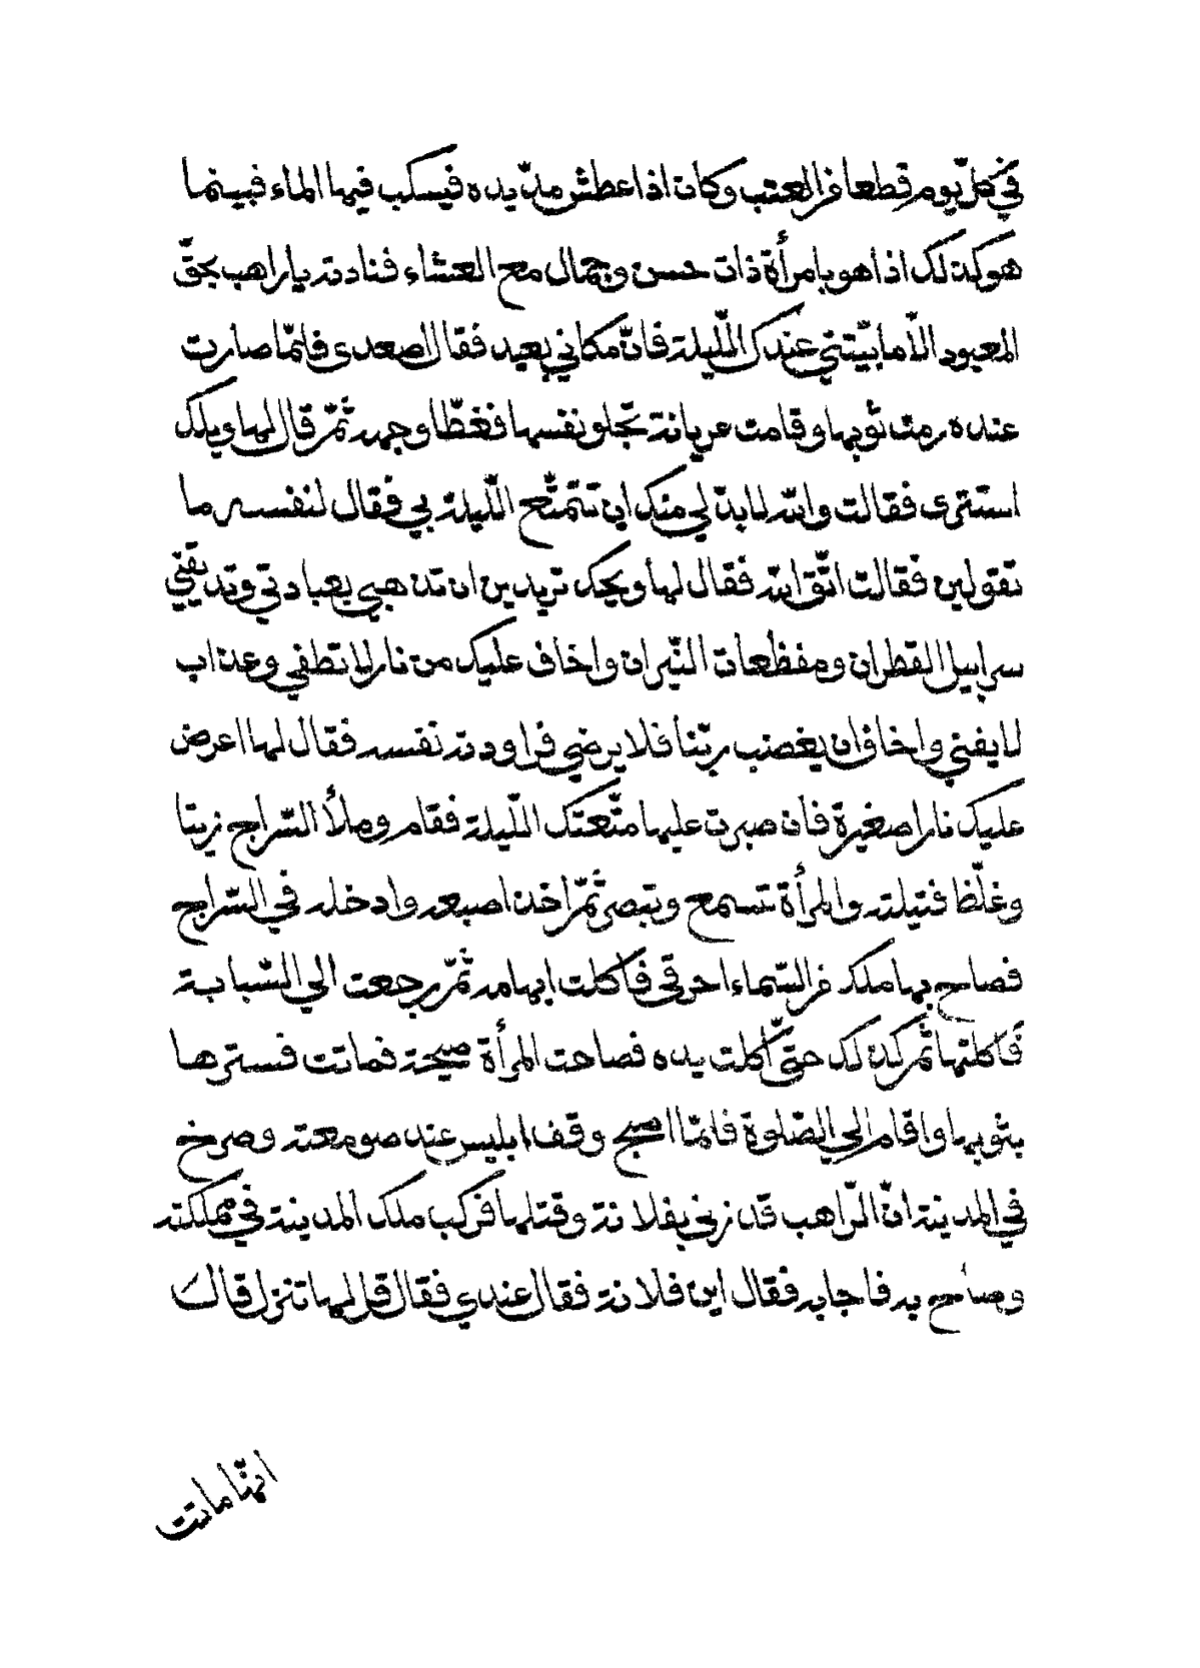 في كلّ يوم قطعا من العنب وكان اذا عطش مدّ يده فيسكب فيها الماء فبينما
هو كذلك اذا هو بامرأة ذات حسن وجمال مع العشاء فنادته يا راهب بحقّ
المعبود الّا ما بيّتني عندك اللّيلة فانّ مكاني بعيد فقال اصعدي فلمّا صارت
عنده رمت ثوبها وقامت عريانة تجلو نفسها فغطّا وجهه ثمّ قال لها ويلك
استتري فقالت والله لا بدّ لي منك ان تتمتّع اللّيلة بي فقال لنفسه ما
تقولين فقالت اتّق الله فقال لها ويحك تريدين ان تذهبي بعبادتي وتذيقني
سرابيل القطران ومفظعات النّيران واخاف عليك من نار لا تطفي وعذاب
لا يفني واخاف ان يغضب ربّنا فلا يرضي فراودته نفسه فقال لها اعرض
عليك نارا صغيرة فان صبرت عليها متّعتك اللّيلة فقام وملأ السّراج زيتا
وغلّظ فتيلته والمرأة تسمع وتبصر ثمّ اخذ اصبعه وادخله في السّراج
فصاح بها ملك من السّماء احرقي فاكلت ابهامه ثمّ رجعت الي السّبابة
فاكلتها ثم كذلك حتّي اكلت يده فصاحت المرأة صيحة فماتت فسترها
بثوبها واقام الي الصّلوة فلمّا اصبح وقف ابليس عند صومعته وصرخ
في المدينة انّ الرّاهب قد زني بفلانة وقتلها فركب ملك المدينة في مملكته
وصاح به فاجابه فقال اين فلانة فقال عندي فقال قل لها تنزل قال
انّها ماتت